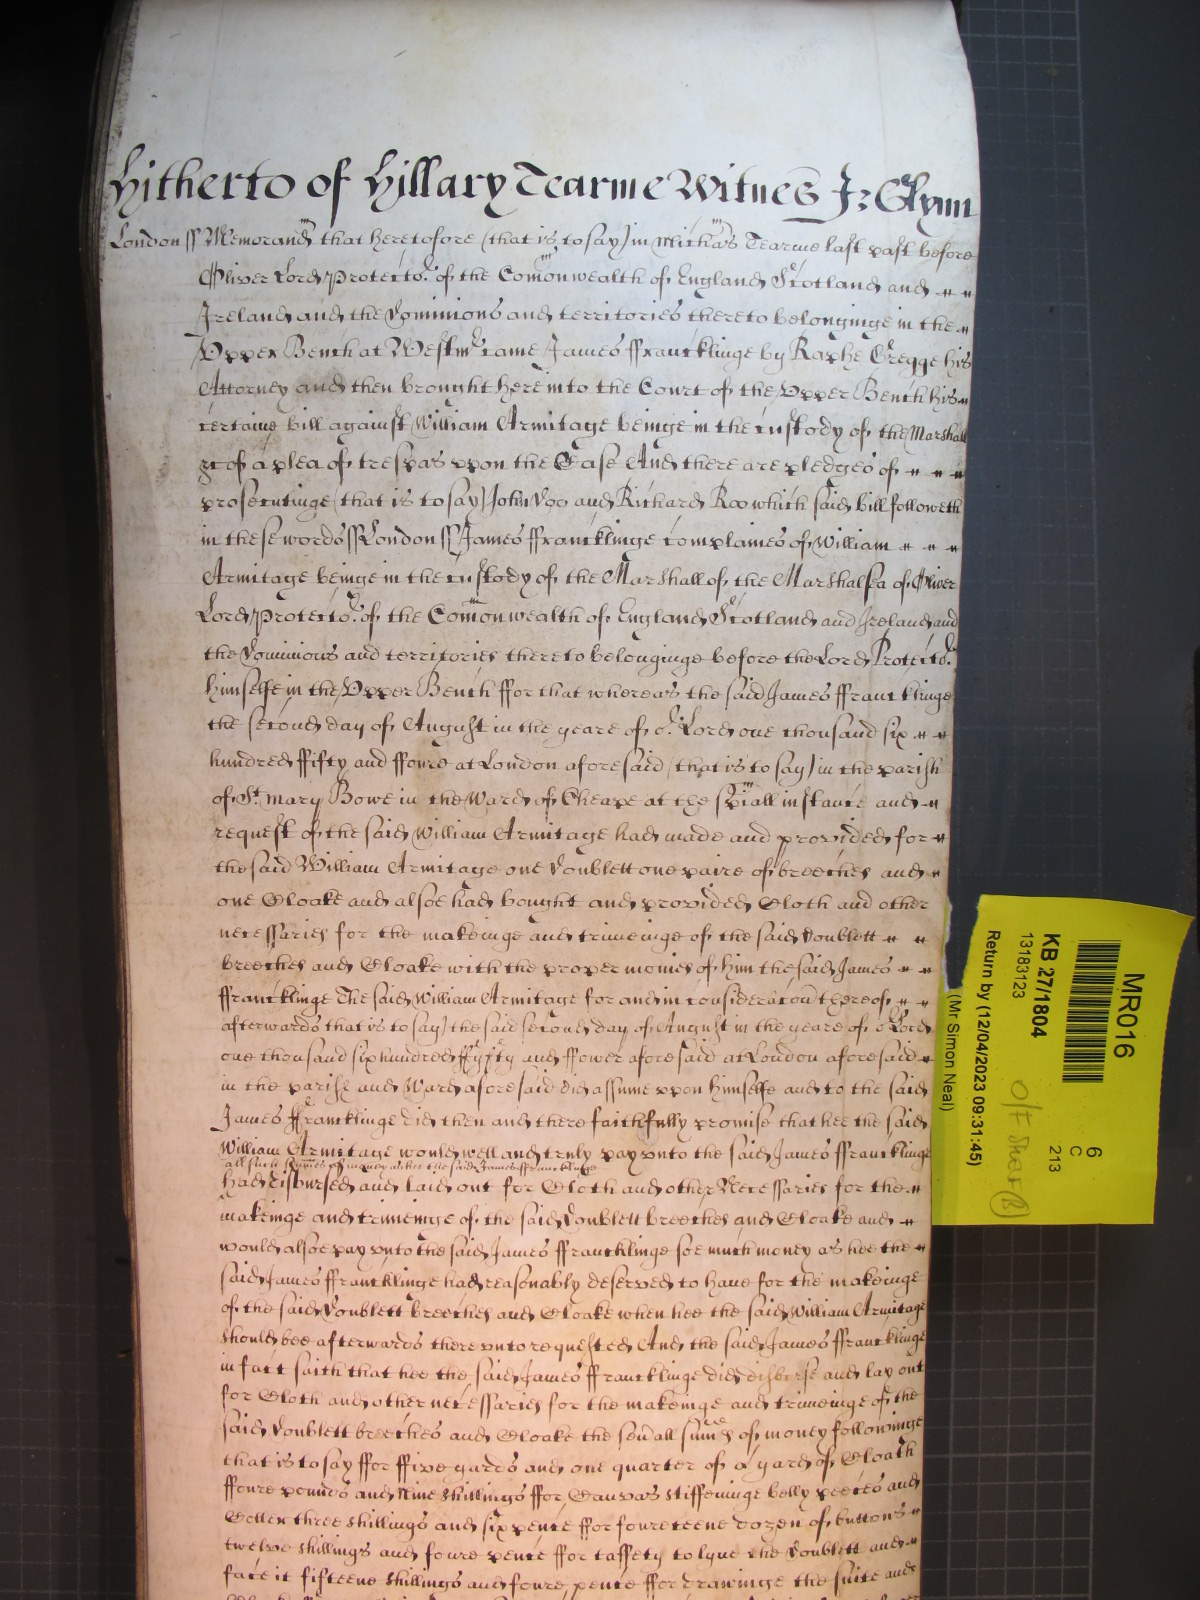 Hitherto of Hillary Tearme Witnes Jo: Glynn
London ss Memorand that heretofore (that is to say) in Michas Tearme last past before
Oliver Lord Protector of the Comonwealth of England Scotland and
Ireland and the Dominions and territories thereto belonginge in the
Upper Bench at Westmr came James ffrancklinge by Raphe Gregge his
Attorney and then brought here into the Court of the Upper Bench his
certaine bill against William Armitage beinge in the custody of the Marshall
&c of a plea of trespas vpon the Case And there are pledges of
prosecutinge (that is to say) John Doo and Richard Roo which said bill followeth
in these words ss London ss James ffrancklinge complaines of William
Armitage beinge in the custody of the Marshall of the Marshalsea of Oliver
Lord Protector of the Comonwealth of England Scotland and Ireland and
the Dominions and territories thereto belonginge before the Lord Protector
himselfe in the Upper Bench ffor that whereas the said James ffrancklinge
the second day of August in the yeare of or Lord one thousand six
hundred ffifty and ffoure at London aforesaid (that is to say) in the parish
of St Mary Bowe in the Ward of Cheape at the spiall instance and
request of the said William Armitage had made and provided for
the said William Armitage one Doublett one paire of breeches and
one Cloake and alsoe had bought and provided Cloth and other
necessaries for the makeinge and trimeinge of the said Doublett
breeches and Cloake with the proper monies of him the said James
ffrancklinge The said William Armitage for and in consideracon thereof
afterwards that is to say the said second day of August in the yeare of or Lord
one thousand six hundred ffyfty and ffower aforesaid at London aforesaid
in the parish and Ward aforesaid did assume vpon himselfe and to the said
James ffrancklinge did then and there faithfully promise that hee the said
William Armitage would well and truly pay vnto the said James ffrancklinge
all such summes of money as hee the said James ffrancklinge
had disbursed and laid out for Cloth and other Necessaries for the
makeinge and trimeinge of the said Doublett breeches and Cloake and
would alsoe pay vnto the said James ffrancklinge soe much money as hee the
said James ffrancklinge had reasonably deserved to have for the makeinge
of the said Doublett breeches and Cloake when hee the said William Armitage
should bee afterwards therevnto requested And the said James ffrancklinge
in fact saith that hee the said James ffrancklinge did disburse and lay out
for Cloth and other necessaries for the makeinge and trimeinge of the
said Doublett breeches and Cloake the sevall sumes of money followinge
that is to say ffor ffive yards and one quarter of a yard of Cloath
ffoure pounds and Nine shillings ffor Canvas stiffeninge belly peeces and
Coller three shillings and six pence ffor foureteene dozen of buttons
twelve shillings and foure pence ffor taffety to lyne the Doublett and
face it fifteene shillings and foure pence ffor drawinge the suite and
MR016
6
C
213
KB 27/1804
13183123
O/T Sheet (B)
Return by (12/04/2023 09:31:45)
(Mr Simon Neal)